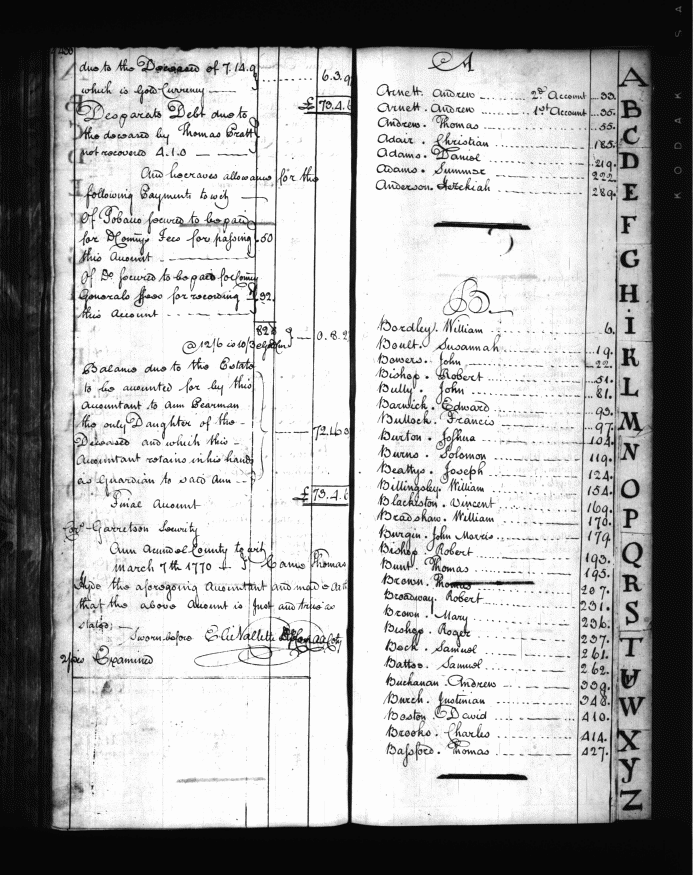 due to the Deceased of 7.14.9
which is Gold Currency — 6.3.9
£ 79.4.6
Desparate Debt due to
the deceased by Thomas Pratt
not recovered 4.1.0
And he craves allowance for the
following Payments to wit
Of Tobacco secured to be paid
for D: Comys Fees for passing 50
this Account
Of Do secured to be paid for Comy
Generals Fees for recording 32
this Account
@ 12/6 is 10/3 0.8.2
Balance due to the Estate
to be accounted for by this
Accountant to Ann Pearman
the only Daughter of the
Deceased and which this
Accountant retains in his hands
as Guardian to said Ann
£ 79.4.6
Final Account
Garretson Security
Ann Arundel County to wit
March 7th 1770 Came Thomas
Hyde the aforegoing Accountant and made Oath
that the above Account is just and true as
stated;
Sworn before Elie Vallette
Examined
A
Arnett. Andrew 2d Account 33.
Arnett. Andrew 1st Account 35.
Andrew. Thomas 55.
Adair. Christian 185.
Adams. Daniel 219.
Adams. Summer 222.
Anderson. Hezekiah 289.
B
Bordley. William 6.
Boult. Susannah 19.
Bowers. John 22.
Bishop. Robert 51.
Bully. John 81.
Barwick. Edward 93.
Bullock. Francis 97.
Burton. Joshua 104.
Burns. Solomon 119.
Beattys. Joseph 124.
Billingsley. William 154.
Blackiston. Vincent 169.
Bradshaw. William 170.
Burgin. John Morris 179.
Bishop. Robert 193.
Bunt. Thomas 195.
Brown. Thomas 207.
Broadway. Robert 231.
Brown. Mary 236.
Bishop. Roger 237.
Beck. Samuel 261.
Battee. Samuel 262.
Buchanan. Andrew 339.
Burch. Justinian 348.
Boston. David 410.
Brooke. Charles 414.
Bassford. Thomas 427.
A
B
C
D
E
F
G
H
I
K
L
M
N
O
P
Q
R
S
T
U
W
X
Y
Z
KODAK